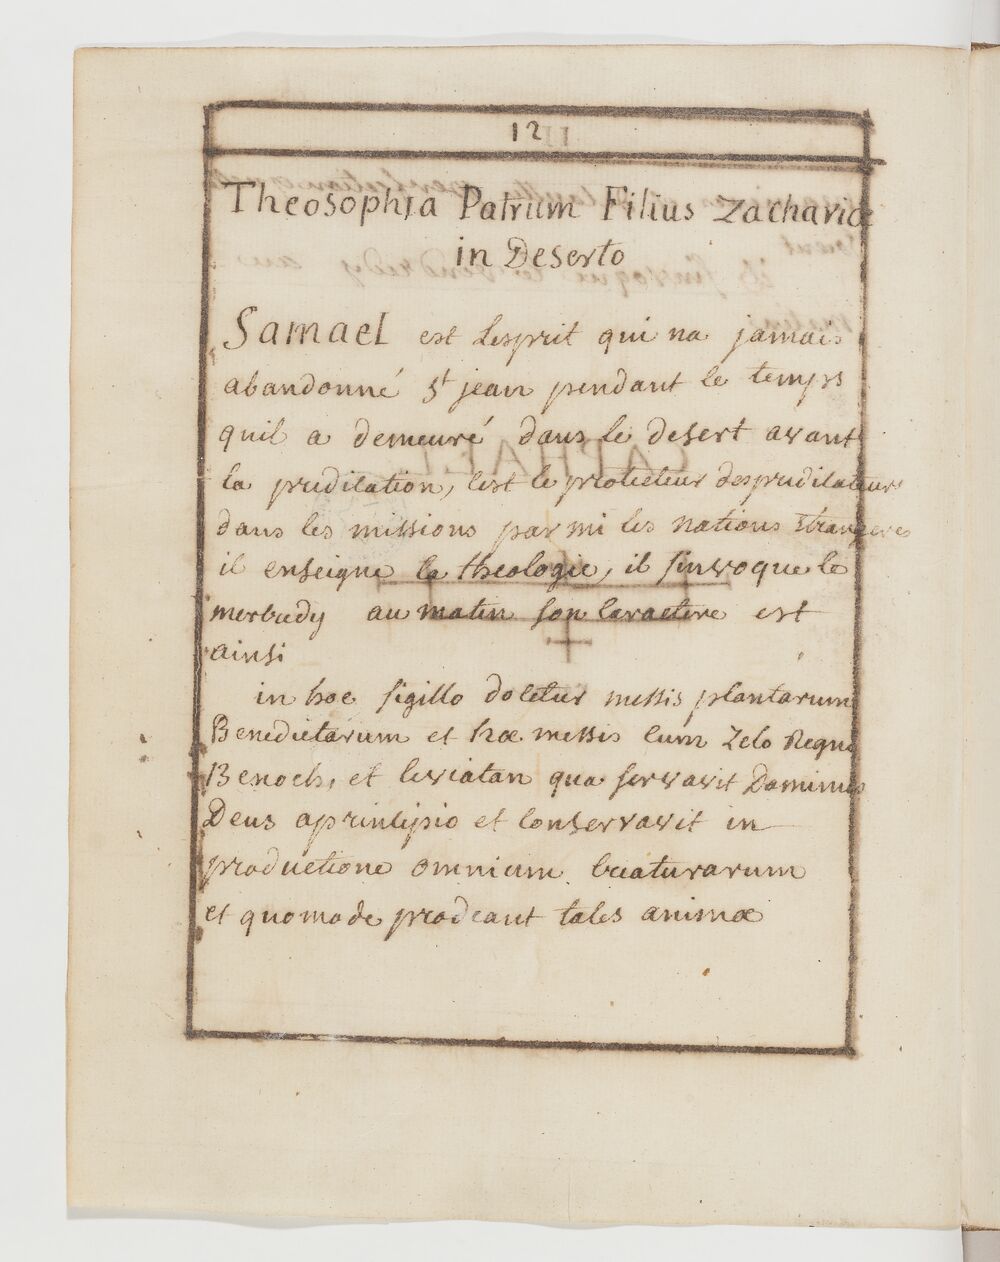 12
Theosophia Patrum Filius Zachariæ
in Deserto
Samael est Lesprit qui na jamais
abandonné St jean pendant le temps
quil a demeuré dans le desert avant
la predication, cest le protecteur des predicateurs
dans les missions parmi les nations strangeres
il enseigne la theologie, il sinvoque le
mercredy au matin son caractere est
ainsi
in hoc sigillo docetur messis plantarum
Benedictarum et hæ messis cum Zelo Regno
Benoch, et leviatan qua servavit Dominus
Deus a principio et conservavit in
productione omnium creaturarum
et quomode prodeant tales animæ